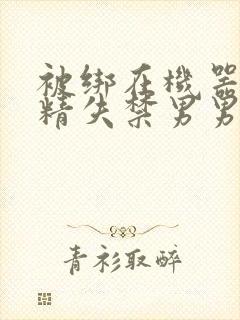 被绑在機器
精失禁男男
青衫取醉